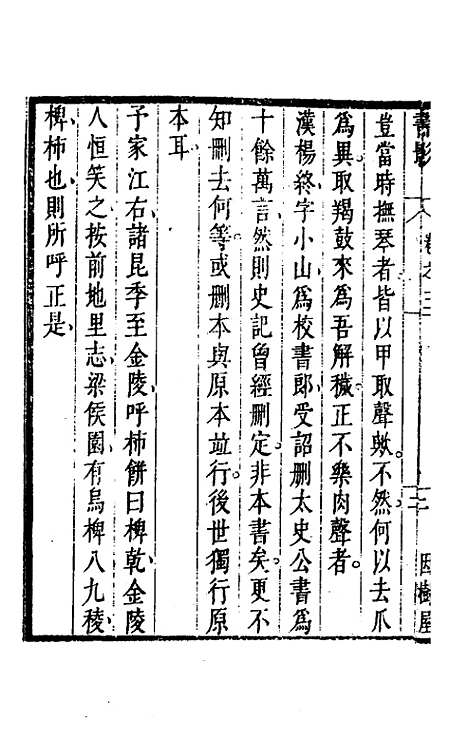 書影 卷之三 因樹屋
豈當時撫琴者皆以甲取聲歟。不然。何以去爪
為異取羯鼓來為吾解穢正不樂肉聲者。
漢楊終字小山為校書郎受詔刪太史公書為
十餘萬言然則史記曾經刪定非本書矣。更不
知刪去何等。或刪本與原本並行。後世獨行原
本耳
予家江右諸昆季至金陵呼柿餅曰椑乾金陵
人恒笑之按前地里志梁侯園有烏椑八九稜
椑柿也則所呼正是